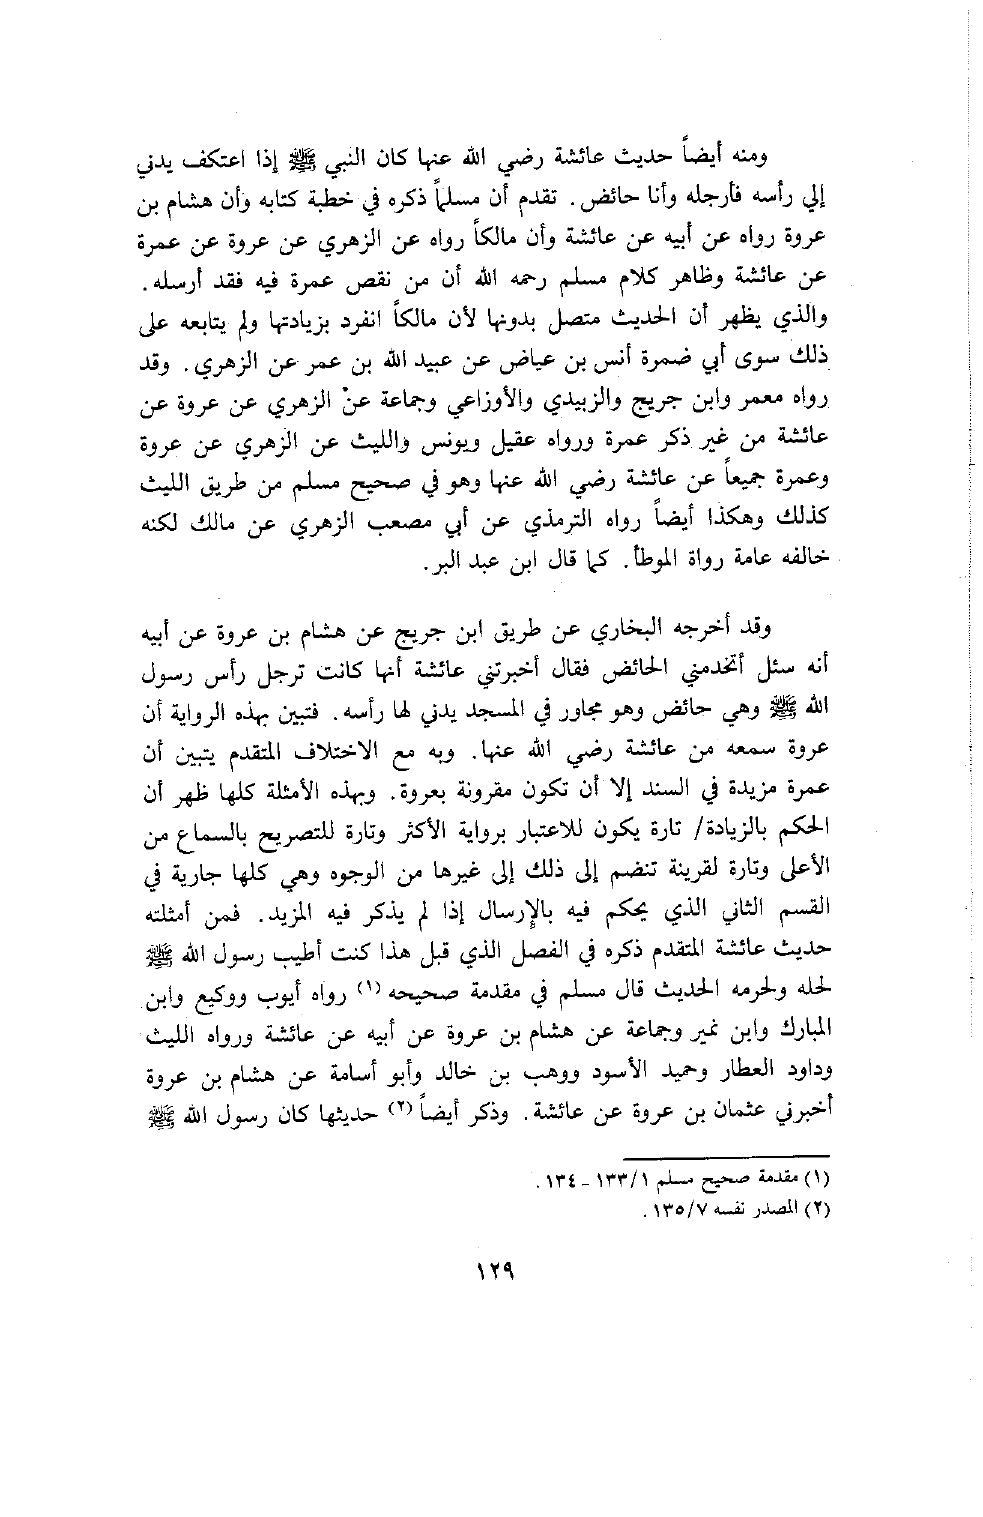 ومنه أيضاً حديث عائشة رضي الله عنها كان النبي ﷺ إذا اعتكف يدني
إلي رأسه فأرجله وأنا حائض. تقدم أن مسلماً ذكره في خطبة كتابه وأن هشام بن
عروة رواه عن أبيه عن عائشة وأن مالكاً رواه عن الزهري عن عروة عن عمرة
عن عائشة وظاهر كلام مسلم رحمه الله أن من نقص عمرة فيه فقد أرسله.
والذي يظهر أن الحديث متصل بدونها لأن مالكاً انفرد بزيادتها ولم يتابعه على
ذلك سوى أبي ضمرة أنس بن عياض عن عبيد الله بن عمر عن الزهري. وقد
رواه معمر وابن جريج والزبيدي والأوزاعي وجماعة عنْ الزهري عن عروة عن
عائشة من غير ذكر عمرة ورواه عقيل ويونس والليث عن الزهري عن عروة
وعمرة جميعاً عن عائشة رضي الله عنها وهو في صحيح مسلم من طريق الليث
كذلك وهكذا أيضاً رواه الترمذي عن أبي مصعب الزهري عن مالك لكنه
خالفه عامة رواة الموطأ. كما قال ابن عبد البر.
وقد أخرجه البخاري عن طريق ابن جريج عن هشام بن عروة عن أبيه
أنه سئل أتخدمني الحائض فقال أخبرتني عائشة أنها كانت ترجل رأس رسول
الله ﷺ وهي حائض وهو مجاور في المسجد يدني لها رأسه. فتبين بهذه الرواية أن
عروة سمعه من عائشة رضي الله عنها. وبه مع الاختلاف المتقدم يتبين أن
عمرة مزيدة في السند إلا أن تكون مقرونة بعروة. وبهذه الأمثلة كلها ظهر أن
الحكم بالزيادة/ تارة يكون للاعتبار برواية الأكثر وتارة للتصريح بالسماع من
الأعلى وتارة لقرينة تنضم إلى ذلك إلى غيرها من الوجوه وهي كلها جارية في
القسم الثاني الذي يحكم فيه بالإرسال إذا لم يذكر فيه المزيد. فمن أمثلته
حديث عائشة المتقدم ذكره في الفصل الذي قبل هذا كنت أطيب رسول الله ﷺ
لحله ولحرمه الحديث قال مسلم في مقدمة صحيحه (١) رواه أيوب ووكيع وابن
المبارك وابن نمير وجماعة عن هشام بن عروة عن أبيه عن عائشة ورواه الليث
وداود العطار وحميد الأسود ووهب بن خالد وأبو أسامة عن هشام بن عروة
أخبرني عثمان بن عروة عن عائشة. وذكر أيضاً (٢) حديثها كان رسول الله ﷺ
(١) مقدمة صحيح مسلم ١/١٣٣ ـ ١٣٤.
(٢) المصدر نفسه ٧/١٣٥.
١٢٩